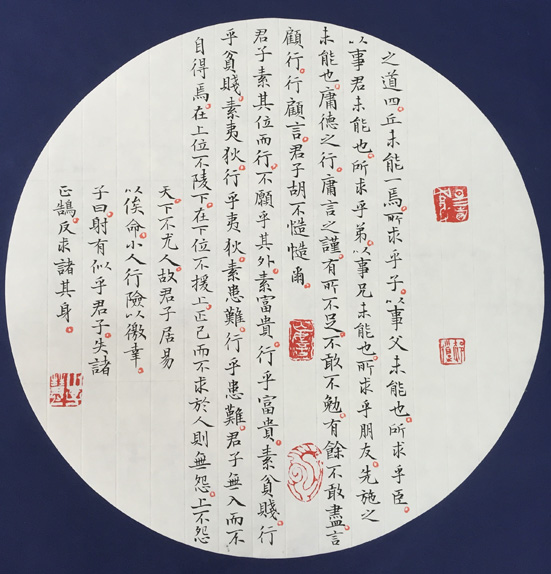 之道四丘未能一焉所求乎子以事父未能也所求乎臣
以事君未能也所求乎弟以事兄未能也所求乎朋友先施之
未能也庸德之行庸言之謹有所不足不敢不勉有餘不敢盡言
顧行行顧言君子胡不慥慥爾
君子素其位而行不願乎其外素富貴行乎富貴素貧賤行
乎貧賤素夷狄行乎夷狄素患難行乎患難君子無入而不
自得焉在上位不陵下在下位不援上正己而不求於人則無怨上不怨
天下不尤人故君子居易
以俟命小人行險以徼幸
子曰射有似乎君子失諸
正鵠反求諸其身